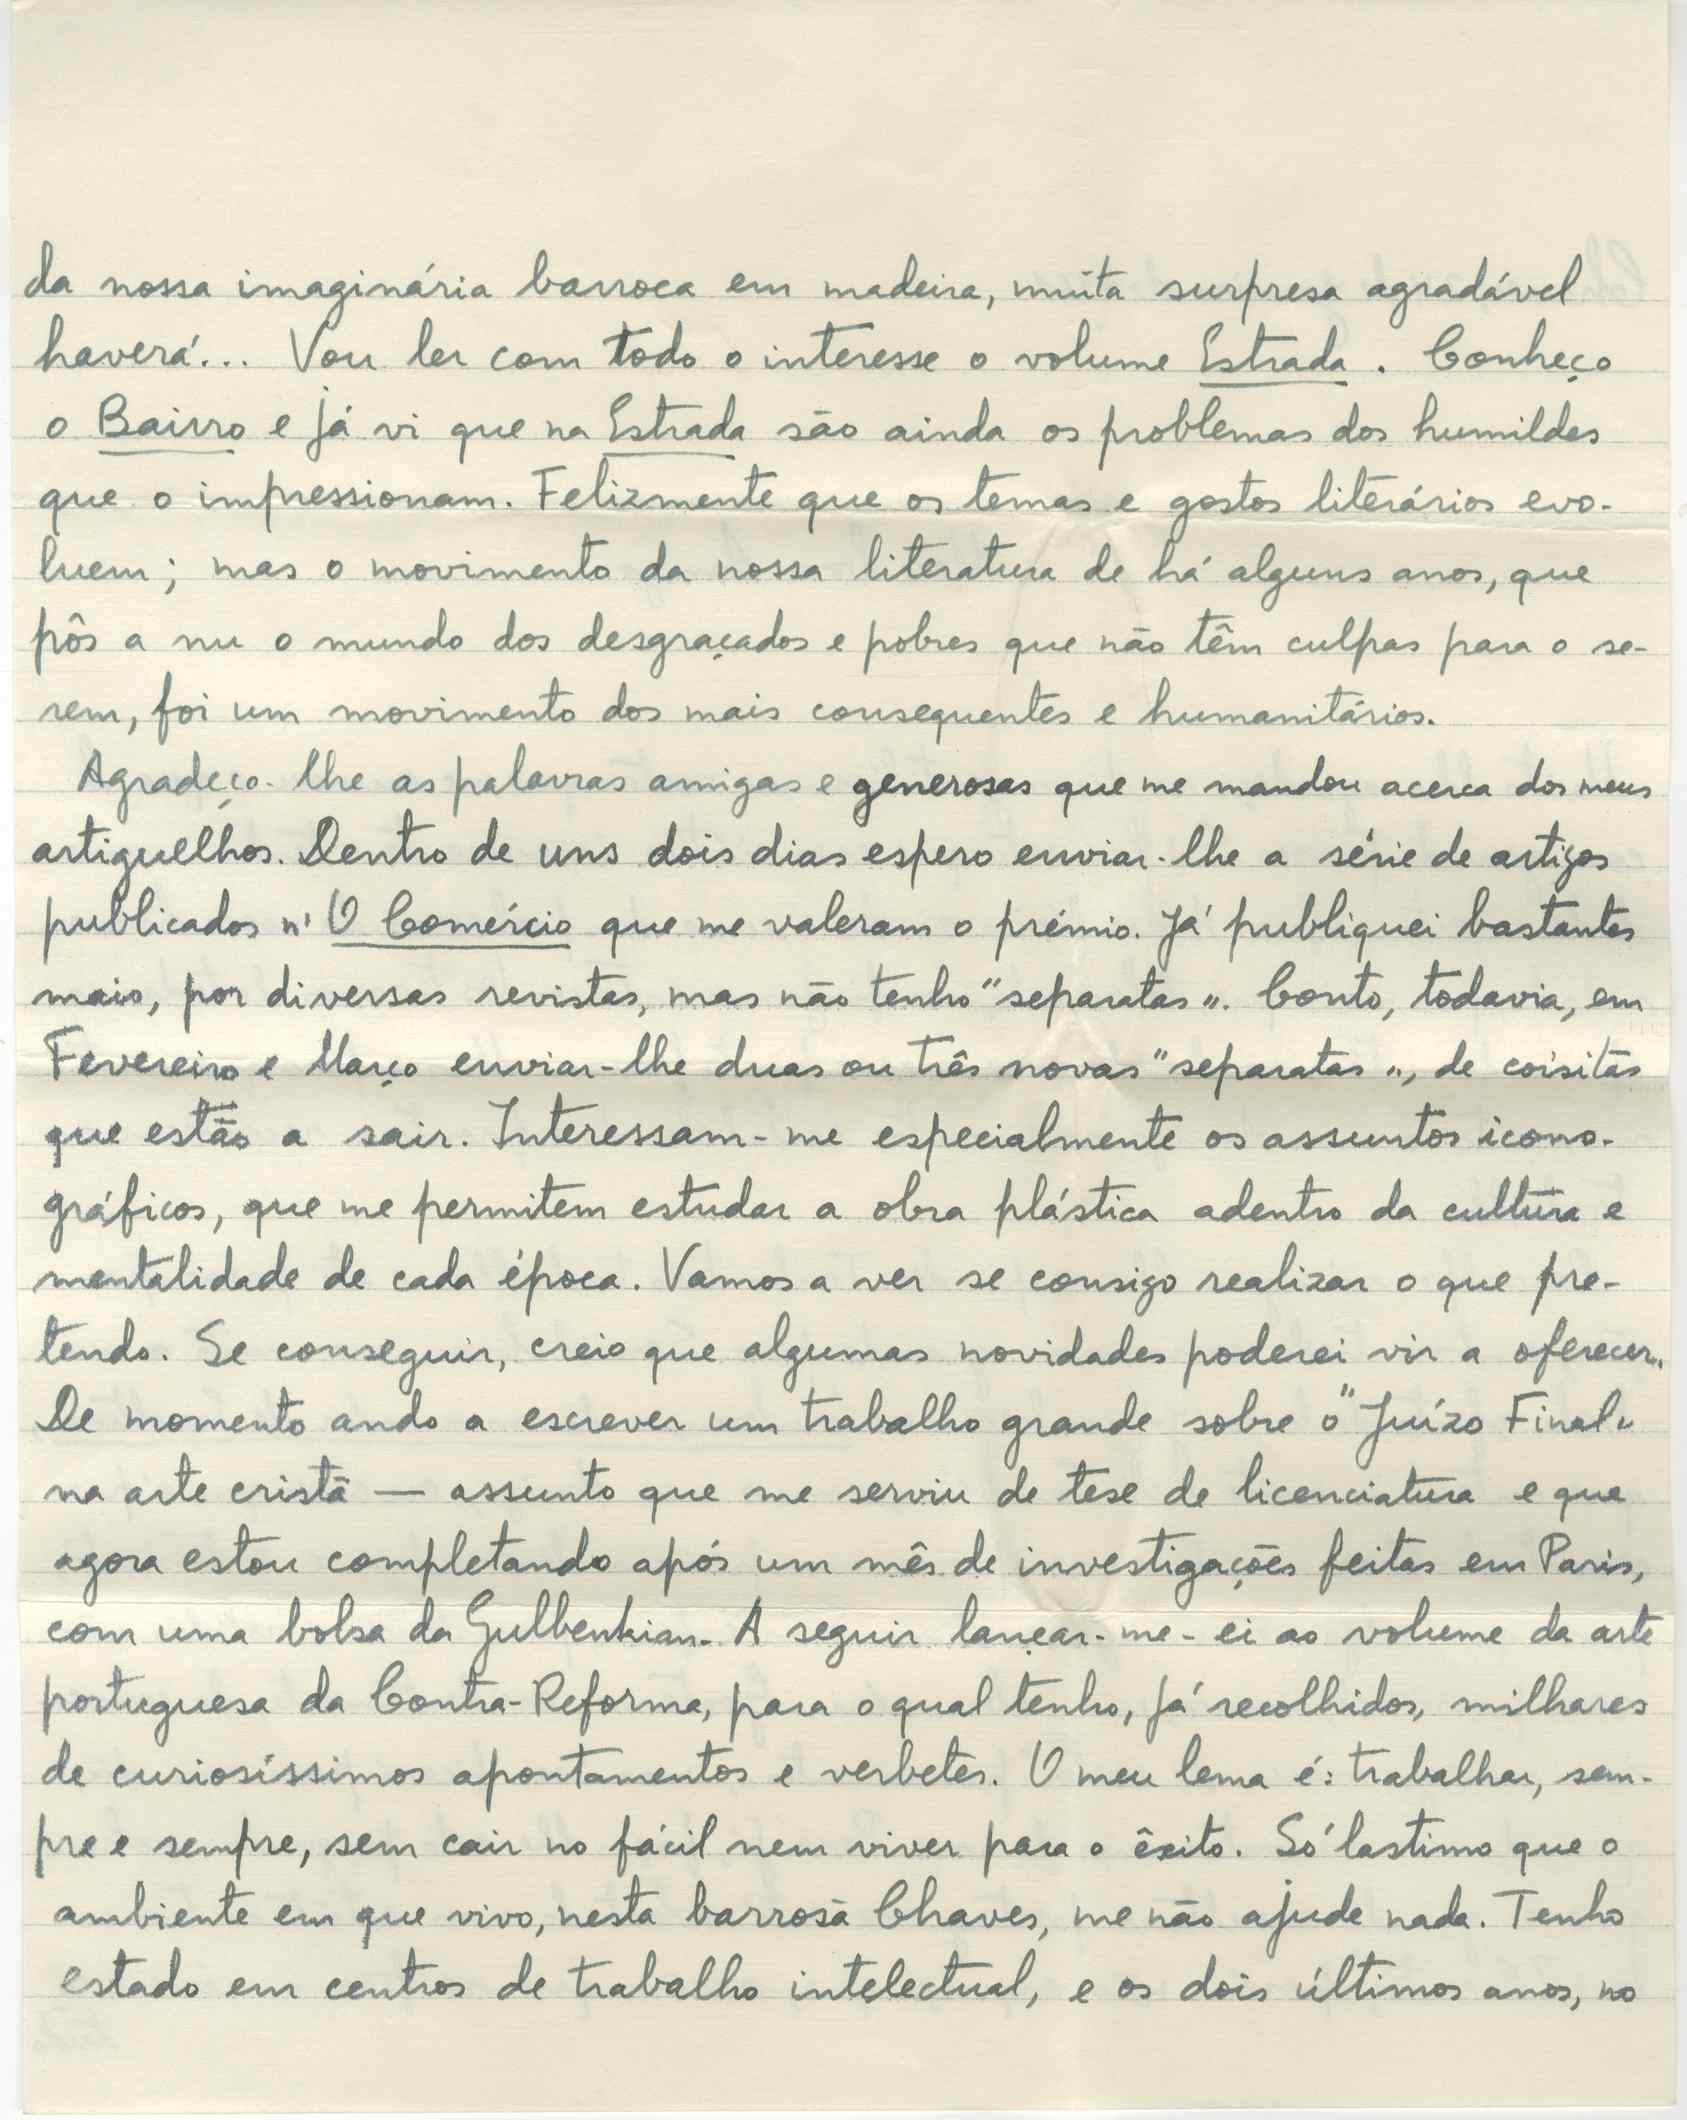 da nossa imaginária barroca em madeira, muita surpresa agradável
haverá... Vou ler com todo o interesse o volume Estrada. Conheço
o Bairro e já vi que na Estrada são ainda os problemas dos humildes
que o impressionam. Felizmente que os temas e gostos literários evo-
luem; mas o movimento da nossa literatura de há alguns anos, que
pôs a nu o mundo dos desgraçados e pobres que não têm culpas para o se-
rem, foi um movimento dos mais consequentes e humanitários.
Agradeço-lhe as palavras amigas e generosas que me mandou acerca dos meus
artiguelhos. Dentro de uns dois dias espero enviar-lhe a série de artigos
publicados n'O Comércio que me valeram o prémio. Já publiquei bastantes
mais, por diversas revistas, mas não tenho "separatas". Conto, todavia, em
Fevereiro e Março enviar-lhe duas ou três novas "separatas", de coisitas
que estão a sair. Interessam-me especialmente os assuntos icono-
gráficos, que me permitem estudar a obra plástica adentro da cultura e
mentalidade de cada época. Vamos a ver se consigo realizar o que pre-
tendo. Se conseguir, creio que algumas novidades poderei vir a oferecer.
De momento ando a escrever um trabalho grande sobre o "Juízo Final"
na arte cristã — assunto que me serviu de tese de licenciatura e que
agora estou completando após um mês de investigações feitas em Paris,
com uma bolsa da Gulbenkian. A seguir lançar-me-ei ao volume da arte
portuguesa da Contra-Reforma, para o qual tenho, já recolhidos, milhares
de curiosíssimos apontamentos e verbetes. O meu lema é: trabalhar, sem-
pre e sempre, sem cair no fácil nem viver para o êxito. Só lastimo que o
ambiente em que vivo, nesta barrosã Chaves, me não ajude nada. Tenho
estado em centros de trabalho intelectual, e os dois últimos anos, no